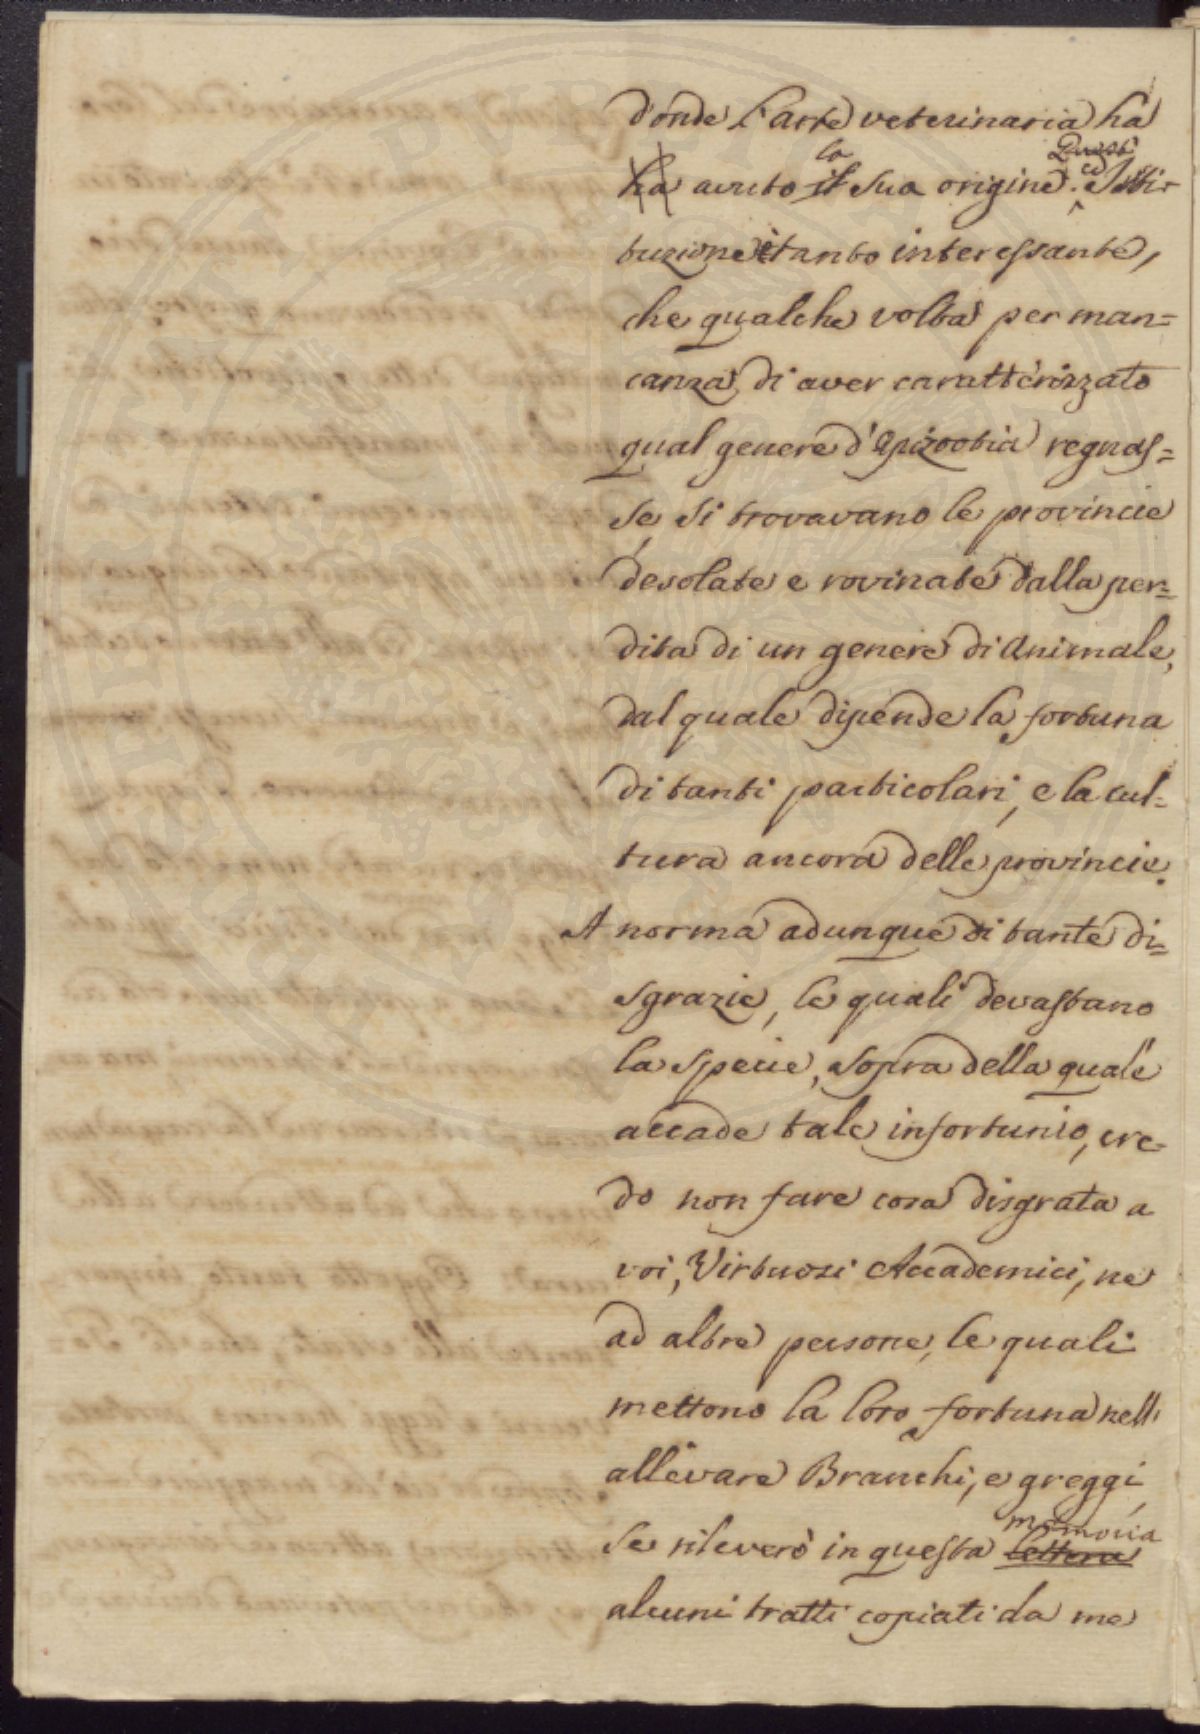 donde l'arte veterinaria ha
ha avuto il la sua origine. Isti-
tuzione tanto interessante,
che qualche volta per man=
canza di aver caratterizzato
qual genere d'Epizootia regnas=
se, si trovavano le provincie
desolate e rovinate dalla per=
dita di un genere di Animale,
dal quale dipende la fortuna
di tanti particolari, e la cul=
tura ancora delle provincie.
A norma adunque di tante di=
sgrazie, le quali devastano
la specie, sopra della quale
accade tale infortunio, cre-
do non fare cosa disgrata a
voi, Virtuosi Accademici, ne
ad altre persone, le quali
mettono la loro fortuna nell'
allevare Branchi, e greggi,
se rileverò in questa lettera memoria
alcuni tratti copiati da me